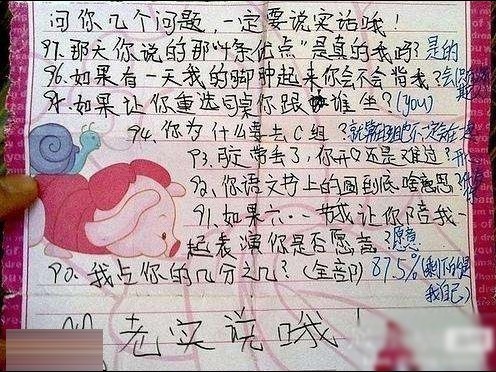 问你几个问题，一定要说实话哦！
97.那天你说的那"十条优点"是真的我吗？是的
96.如果有一天我的脚肿起来你会不会背我？会
95.如果让你重选同桌你跟谁坐？(you)
94.你为什么要去C组？
93.肯定带去了，你开心还是难过？开
92.你语文书上的圈到底啥意思？
91.如果六·一节我让你陪我一
起表演你是否愿意？愿意
90.我占你的几分之几？(全部) 87.5%(剩下的是
我自己)
老实说哦！
dream of me